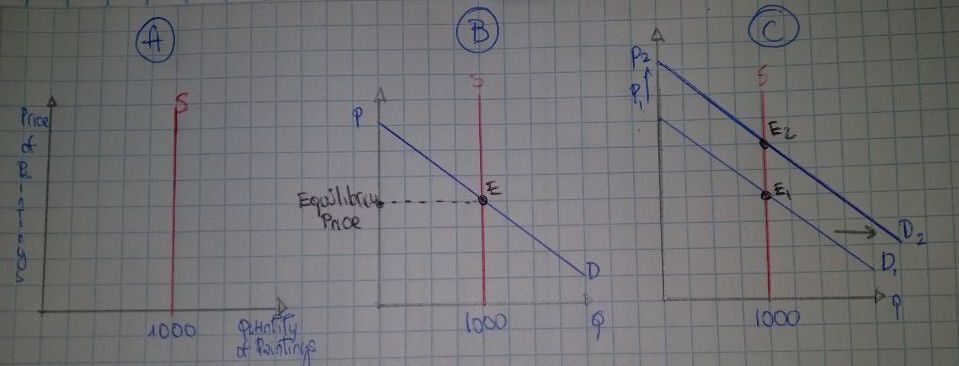 A
S
Price
of
Paintings
1000
Quantity
of Paintings
B
S
P
Equilibrium
Price
E
D
1000
Q
C
P2
P1
S
E2
E1
D2
D1
1000
Q